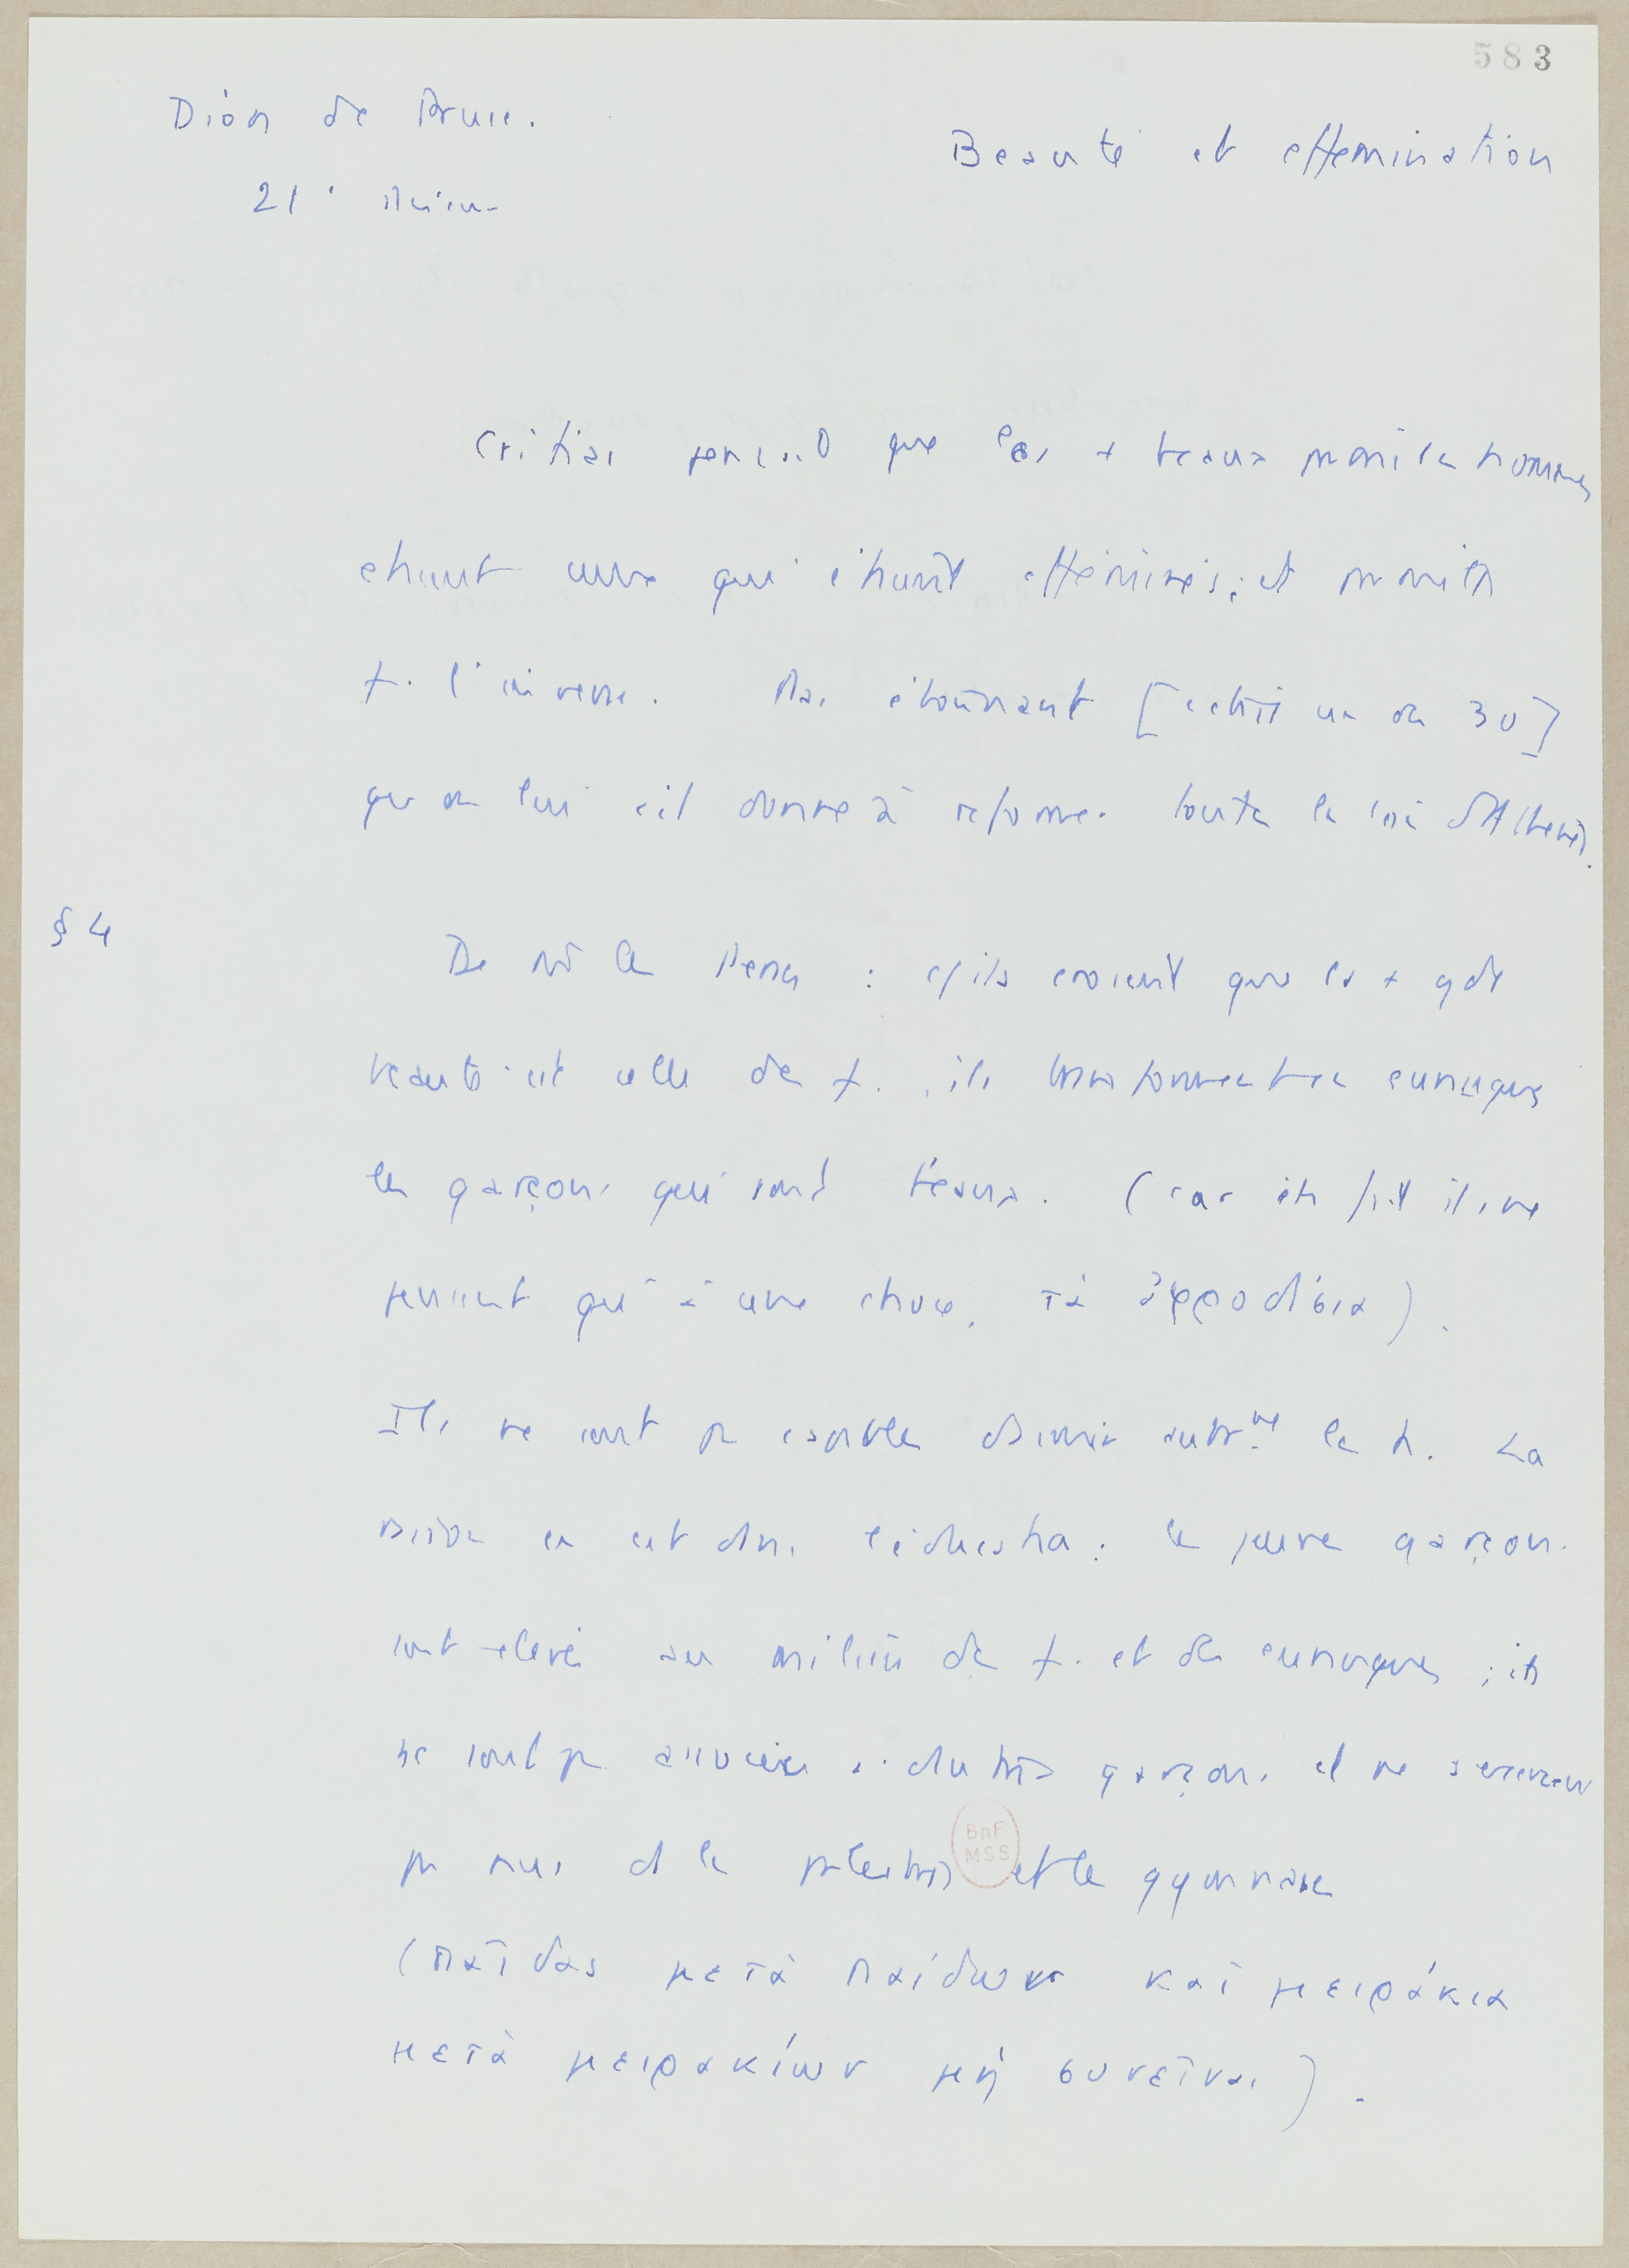 583
Dion de Pruse.
21e discours
Beauté et effemination
Critias pensait que les + beaux parmi les hommes
étaient ceux qui étaient efféminés ; et parmi les
f. l'inverse. Pas étonnant [c'était un des 30]
qu'on lui ait donné à réformer toutes les lois d'Athènes.
§ 4
De m̂ les Perses : c/ ils croient que la + gde
beauté est celle des f., ils transforment en eunuques
les garçons qui sont beaux. (car en fait ils ne
pensent qu'à une chose, τὰ ἀφροδίσια).
Ils ne sont pas capables d'aimer autrmt les h. La
raison en est dans l'éducation : les jeunes garçons
sont élevés au milieu de f. et des eunuques ; ils
ne sont pas associés à d'autres garçons et ne s'exercent
pas nus ds les palestres et les gymnases
(παῖδας μετὰ παίδων καὶ μειράκια
μετὰ μειρακίων μὴ συνεῖναι).
BnF
MSS